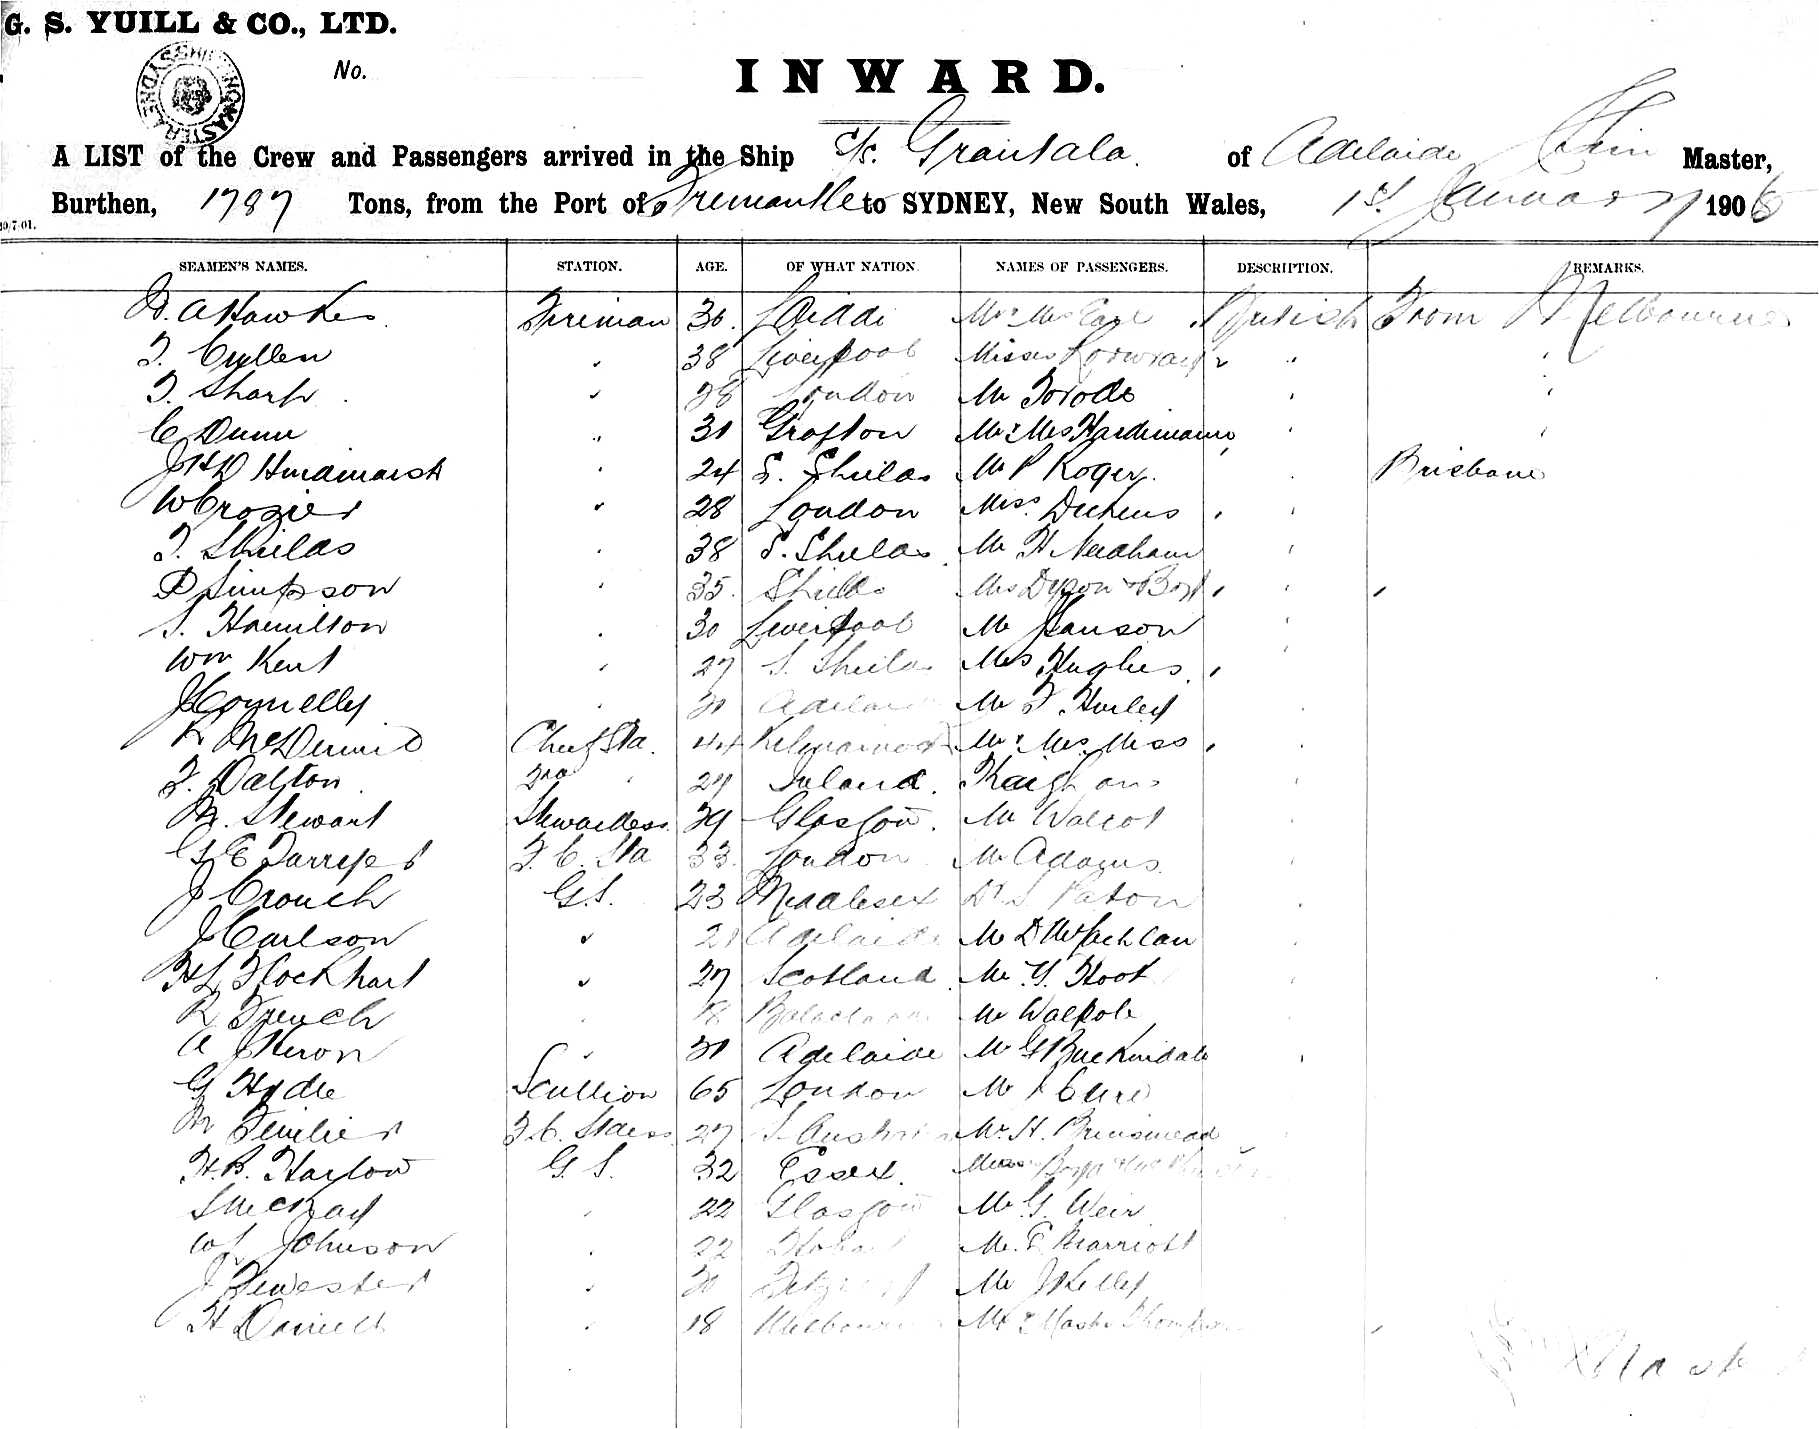 G. S. YUILL & CO., LTD.
No.
INWARD.
A LIST of the Crew and Passengers arrived in the Ship S/s. Grantala. of Adelaide Master,
Burthen, 1787 Tons, from the Port of Fremantle to SYDNEY, New South Wales, 1st January 1906
SEAMEN'S NAMES. STATION. AGE. OF WHAT NATION. NAMES OF PASSENGERS. DESCRIPTION. REMARKS.
Hawkes Fireman 30. Mr & Mrs British From Melbourne
T. Cullen 38 Liverpool Misses
T. Sharp 38 London Mr Torode
C Dunn 31 Grafton Mr & Mrs Hardimann
J H D Hindmarsh 24 S. Shields Mr P Roger. Brisbane
W Crozier 28 London Miss Dickens
T. Shields 38 S. Shields Mr H Needham
P Simpson 35. Shields Mrs Dyson & Boy
S. Hamilton 30 Liverpool Mr Hanson
Wm Kent 27 S. Shields Mrs Hughes
J Connelly 31 Adelaide Mr F Hurley
R McDermid Chief Sta. 44 Mr Mrs Miss
F. Dalton 2nd 27 Ireland. Keighans
M. Stewart Stewardess 39 Glasgow. Mr Walcot
F. C. Sta 33 London Mr Adams
J Crouch G.S. 23 Middlesex Paton
J Carlson 21 Adelaide Mr D McLachlan
H L Flockhart 27 Scotland Mr G. Hoot
R French 18 Mr Walpole
A J Heron 31 Adelaide Mr G Buckindale
G Hyde Scullion 65 London Mr
M 27 S. Australia Mr H. Brinsmead
H. B. Harlow G S. 32 Essex.
S McKay 22 Glasgow Mr G. Weir
W L Johnson 22 Hobart Mr E Marriott
J 30 Mr J Kelly
H Daniell 18 Melbourne Mr & Master Thompson